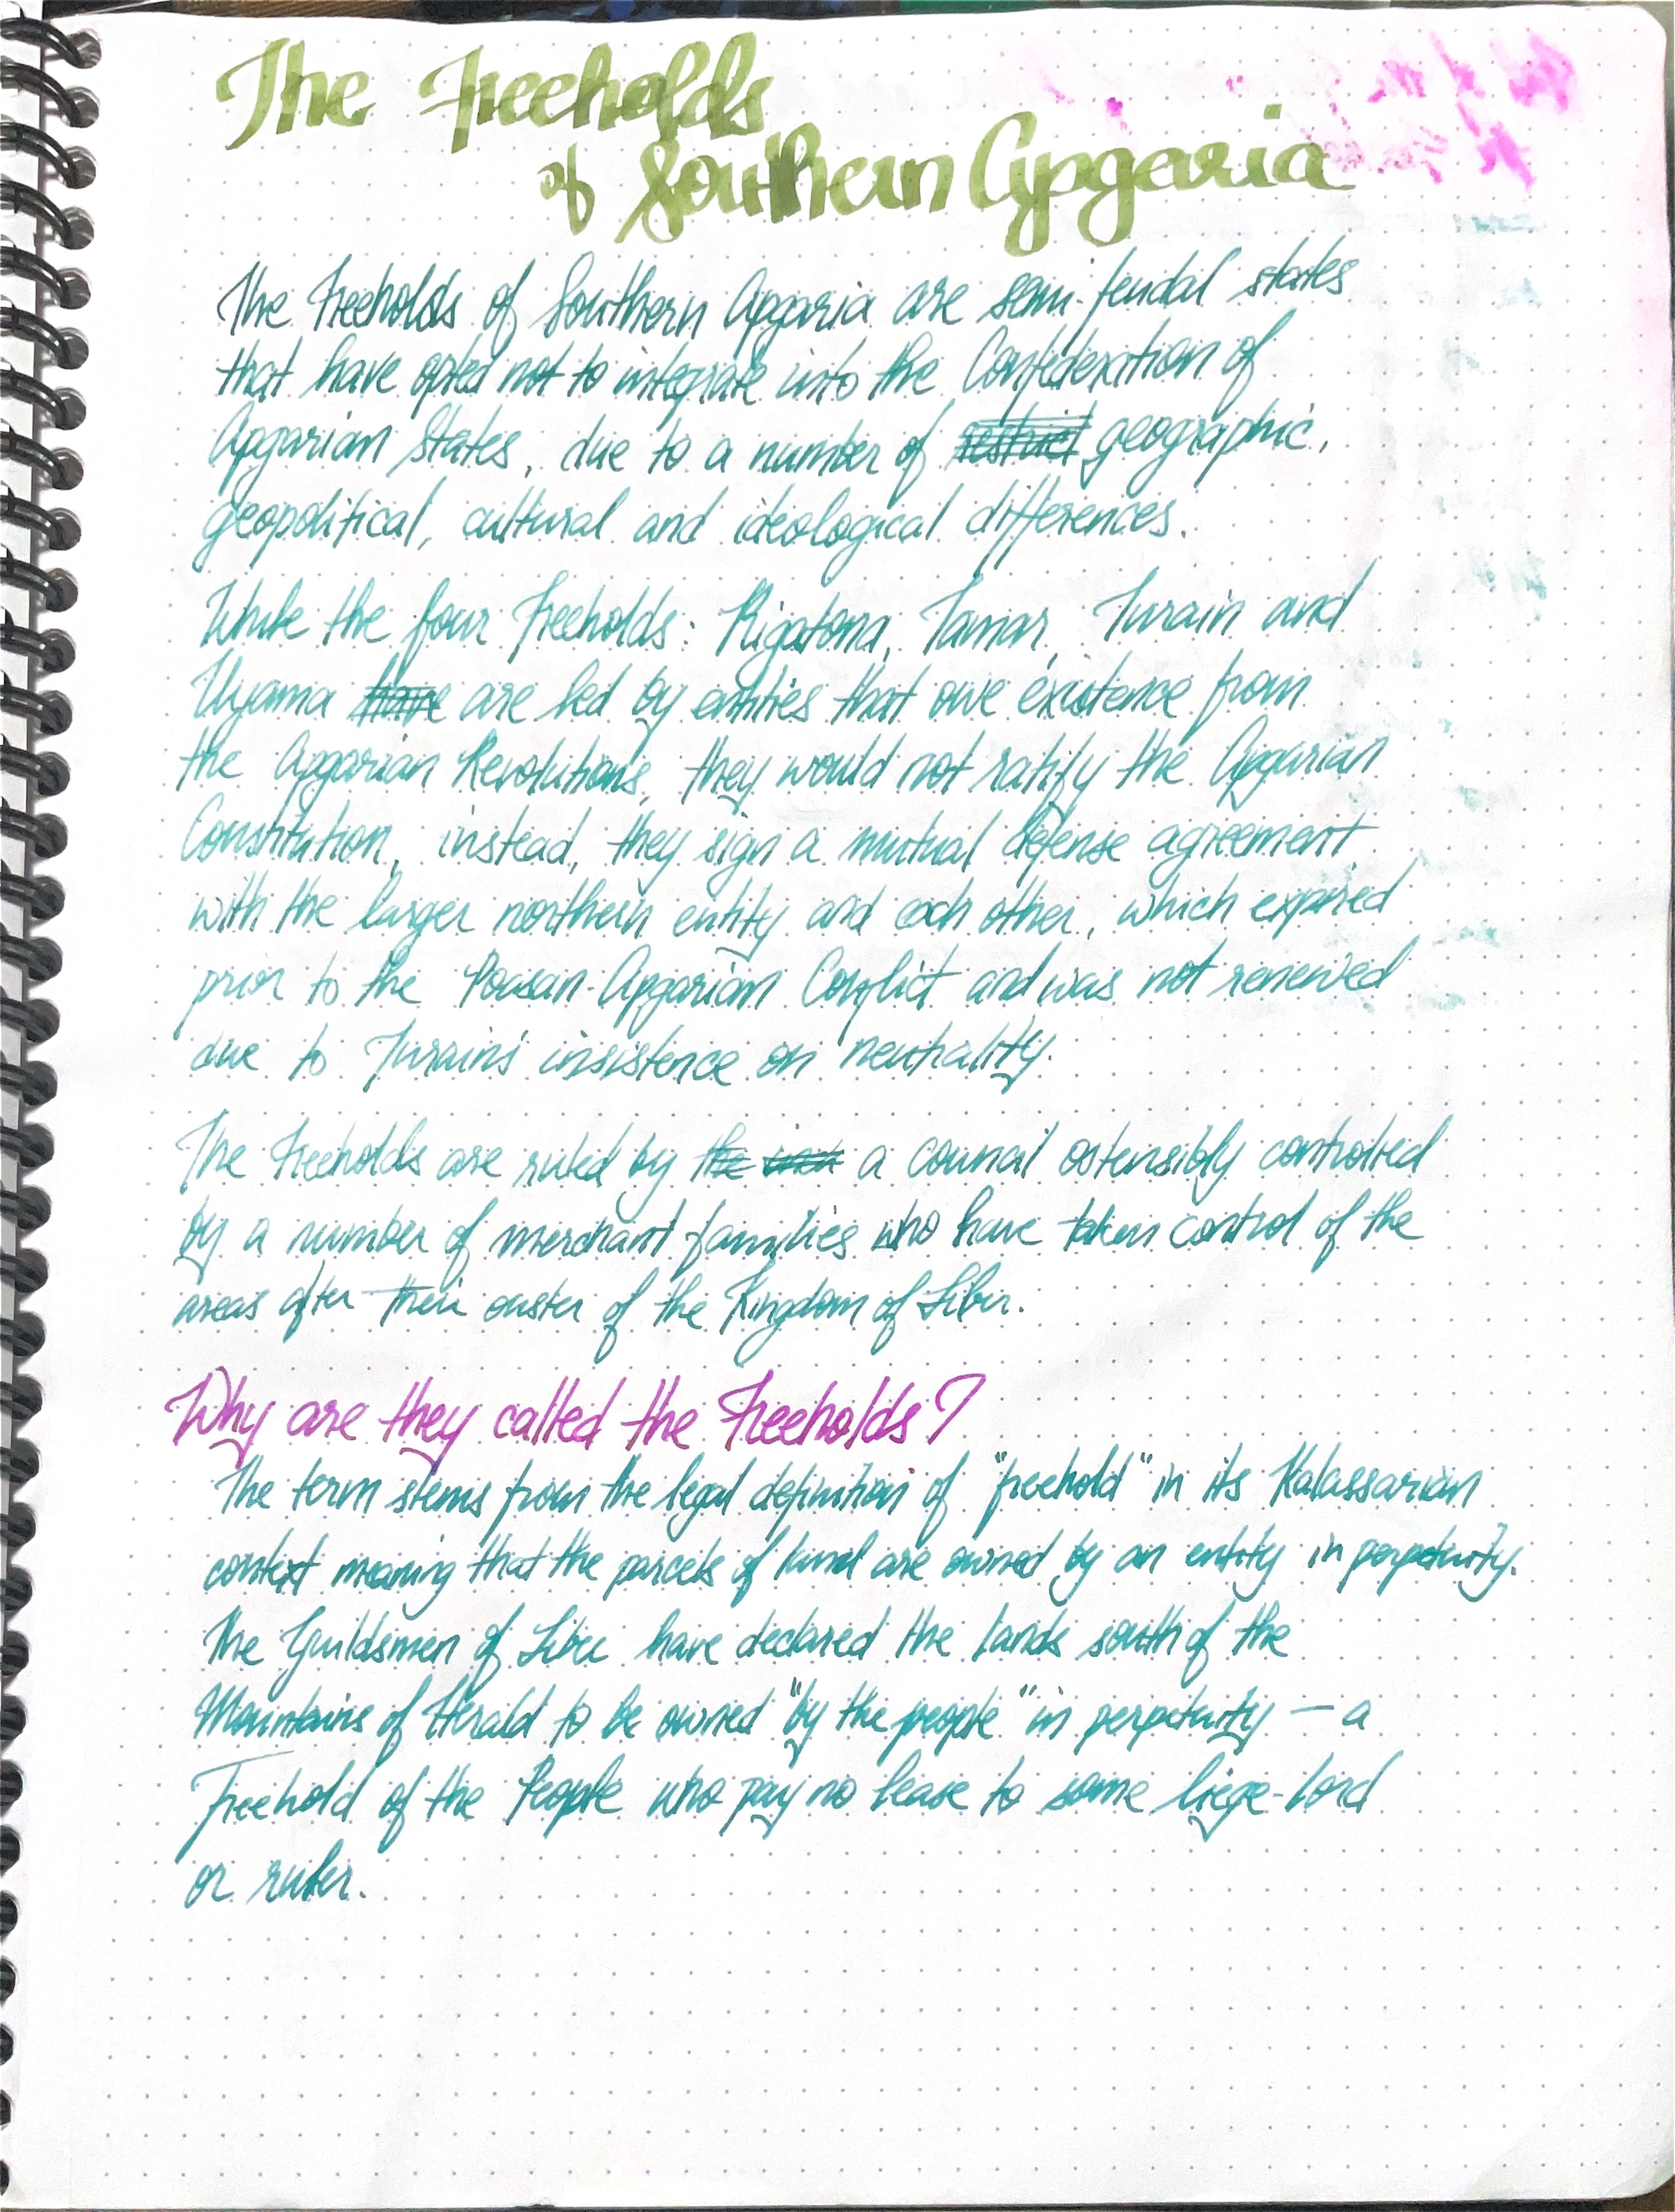 The Freeholds
of Southern Apgaria
The Freeholds of Southern Apgaria are semi-feudal states
that have opted not to integrate into the Confederation of
Apgarian States, due to a number of restrict geographic,
geopolitical, cultural and ideological differences.
While the four Freeholds: Rigatona, Tamar, Turain and
Uyama have are led by entities that owe existence from
the Apgarian Revolutions, they would not ratify the Apgarian
Constitution, instead, they sign a mutual defense agreement
with the larger northern entity and each other, which expired
prior to the Poasan-Apgarian Conflict and was not renewed
due to Turain's insistence on neutrality.
The Freeholds are ruled by the a council ostensibly controlled
by a number of merchant families who have taken control of the
areas after their ouster of the Kingdom of Liber.
Why are they called the Freeholds?
The term stems from the legal definition of "freehold" in its Kalassarian
context meaning that the parcels of land are owned by an entity in perpetuity.
The Guildsmen of Liber have declared the lands south of the
Mountains of Herald to be owned "by the people" in perpetuity — a
Freehold of the People who pay no lease to some liege-lord
or ruler.